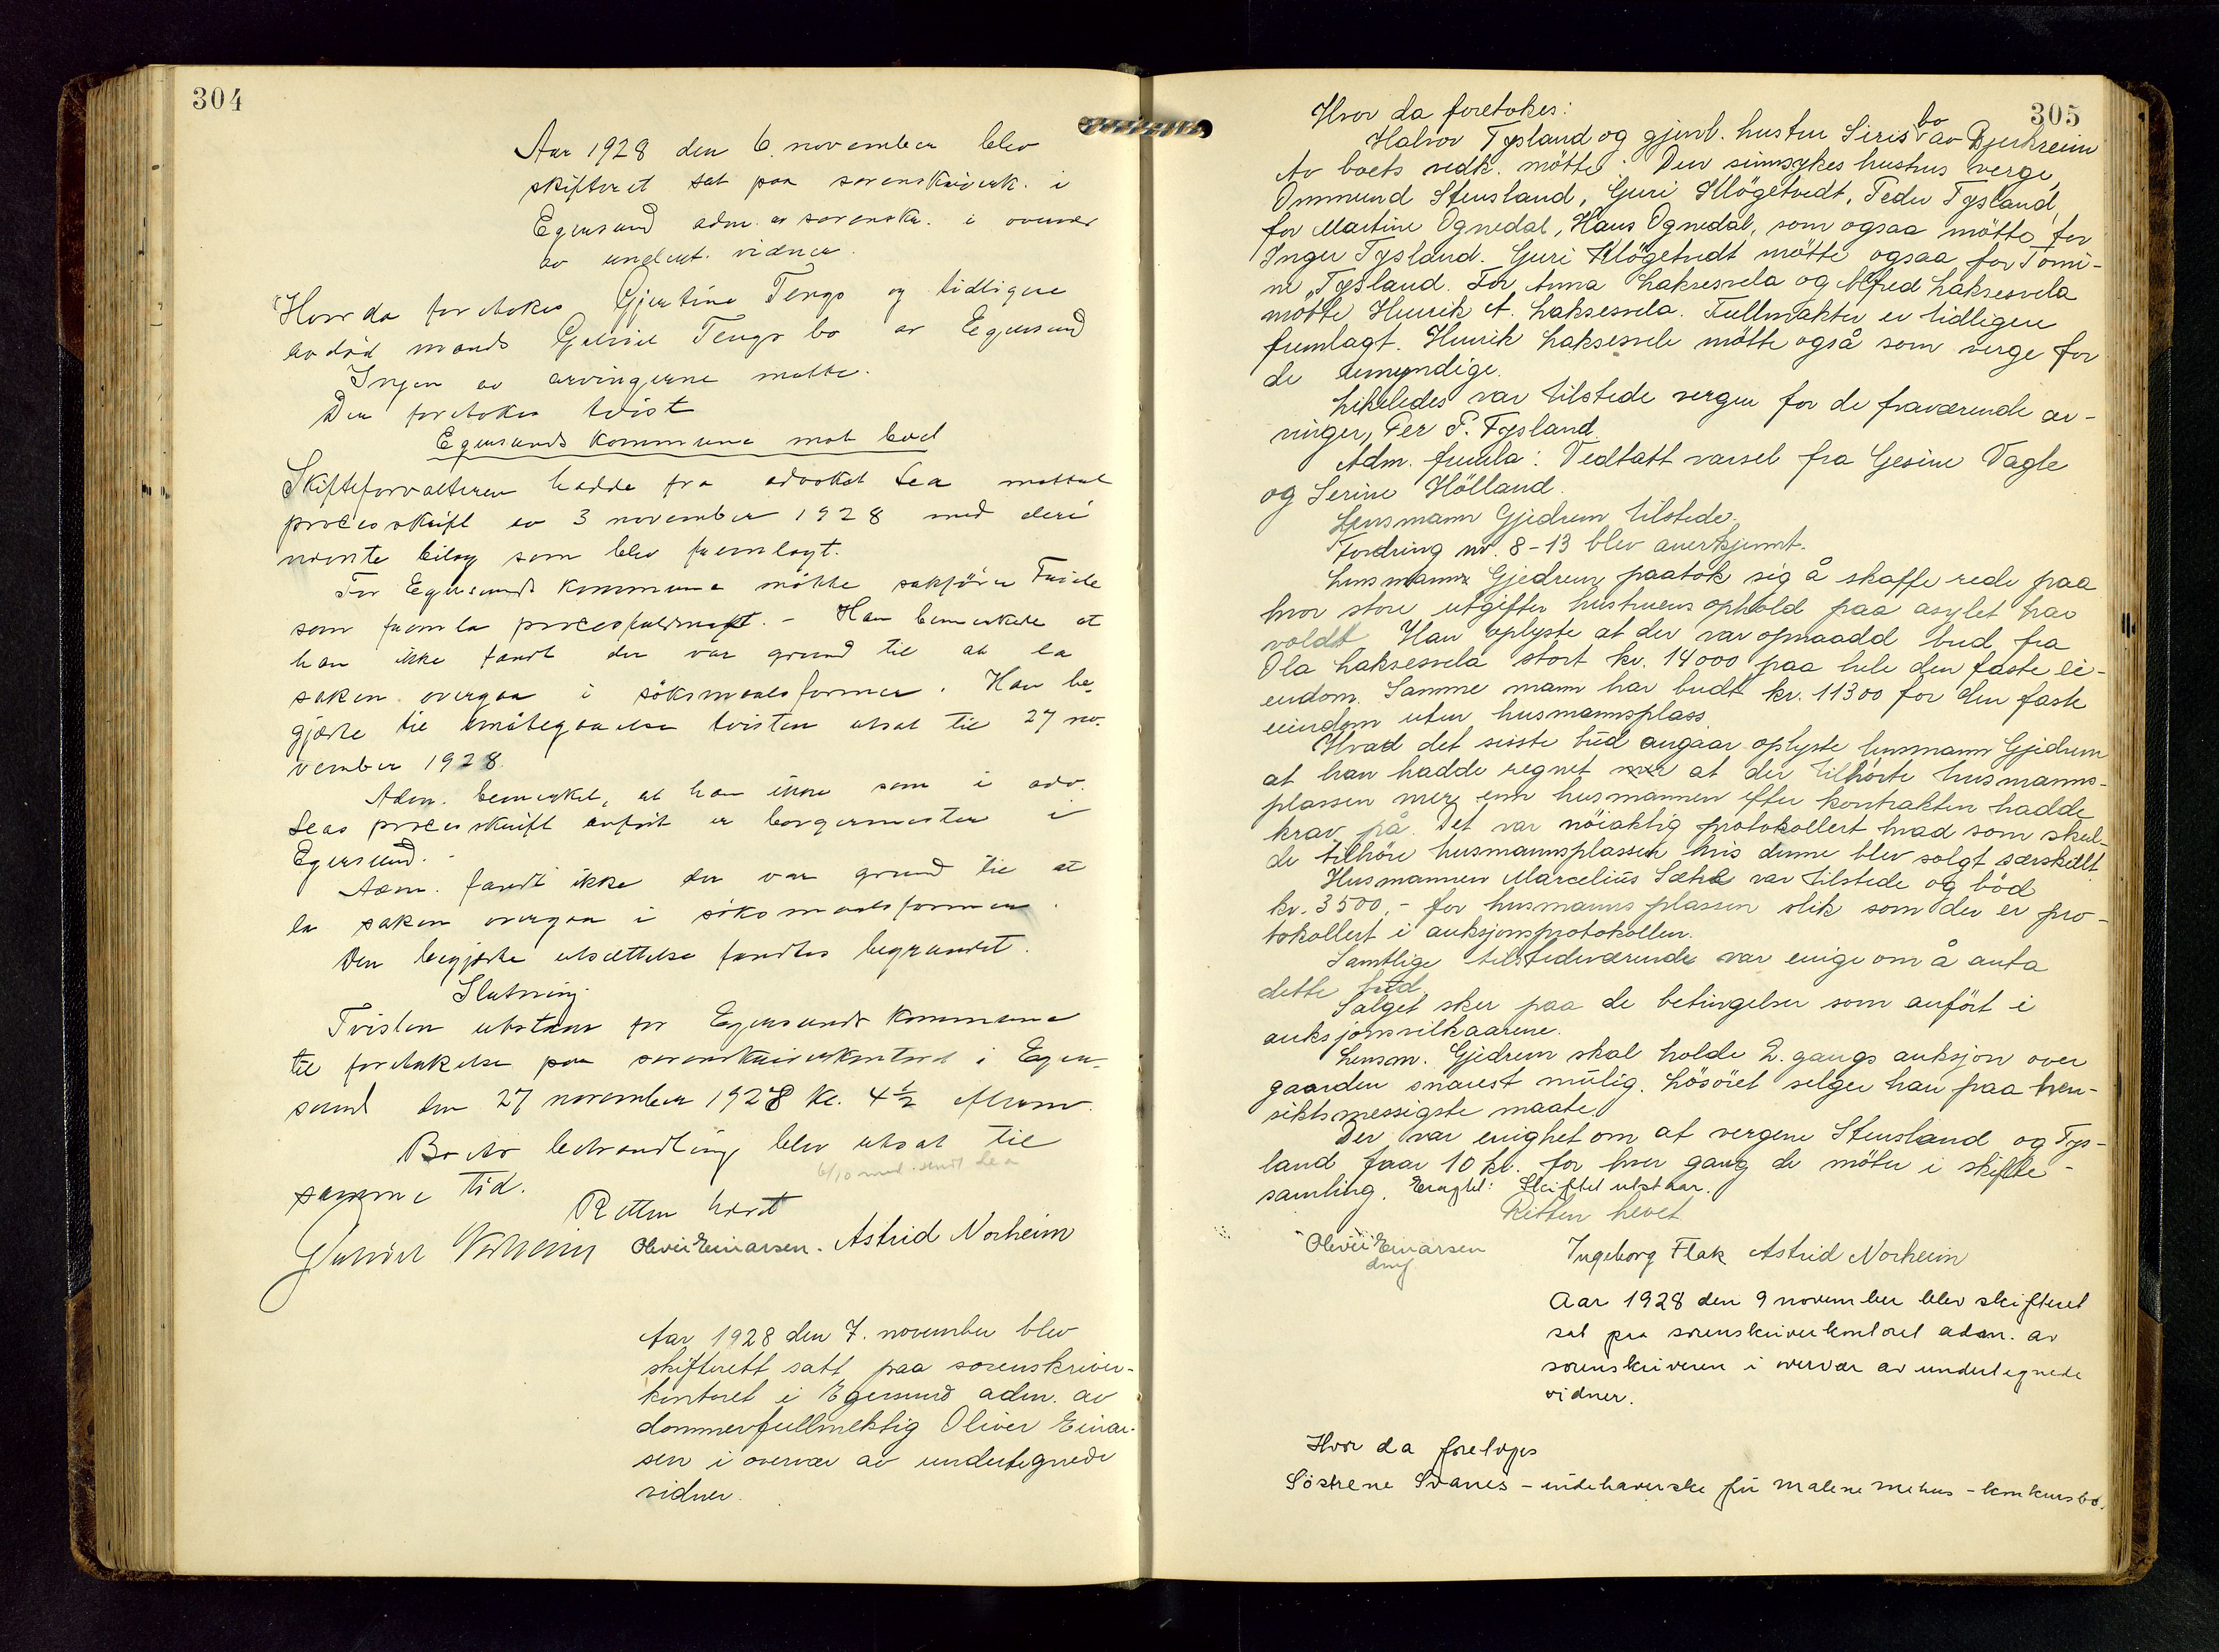 304
Aar 1928 den 6. november blev
skifteret sat paa sorenskriverk. i
Egersund adm. av sorenskr. i overvær
av undert. vidner.
Hvor da foretokes Gjertine Tengs og tidligere
avdød mands Gabriel Tengs bo av Egersund
Ingen av arvingerne møtte.
Der foretokes tvist
Egersunds kommune mot boet
Skifteforvalteren hadde fra advokat Lea mottat
processkrift av 3 november 1928 med deri
nævnte bilag som blev fremlagt.
For Egersunds kommune møtte sakfører
som fremla procesfuldmagt. - Han bemerkede at
han ikke fandt der var grund til at la
saken overgaa i søksmaalsformer. Han be-
gjærte til imøtegaaelse tvisten utsat til 27 no-
vember 1928.
Adm. bemerket, at han ikke som i adv.
Leas processkrift anført er borgermester i
Egersund. -
Adm. fandt ikke der var grund til at
la saken overgaa i søksmaalsformer.
Den begjærte utsættelse fandtes begrundet.
Slutning:
Tvisten utstaar for Egersunds kommune
til foretakelse paa sorenskriverkontoret i Eger-
sund den 27 november 1928 kl. 4 1/2 efterm.
Boets behandling blev utsat til
samme tid.
Retten hævet
Oliver Einarsen. Astrid Norheim
Aar 1928 den 7. november blev
skifterett satt paa sorenskriver-
kontoret i Egersund adm. av
dommerfullmektig Oliver Einar-
sen i overvær av undertegnede
vidner.
305
Hvor da foretokes:
Halvor Tysland og gjenl. hustru Siris bo av Bjerkreim
Av boets vedk. møtte: Den sinnsykes hustrus verge,
Ommund Stensland, Guri Kløgetvedt, Peder Tysland,
for Martine Ognedal, Hans Ognedal, som ogsaa møtte for
Inger Tysland. Guri Kløgetvedt møtte ogsaa for Tomi-
ne Tysland. For Anna Laksesvela og Alfred Laksesvela
møtte Henrik A. Laksesvela. Fullmakter er tidligere
fremlagt. Henrik Laksesvela møtte også som verge for
de umyndige.
Likeledes var tilstede vergen for de fraværende ar-
vinger, Per P. Tysland.
Adm. fremla: Vedtatt varsel fra Gesine Vagle
og Serine Hölland.
Lensmann Gjedrem tilstede.
Fordring nr. 8-13 blev anerkjennt.
Lensmann Gjedrem paatok sig å skaffe rede paa
hvor store utgifter hustruens ophold paa asylet har
voldt. Han oplyste at der var opnaadd bud fra
Ola Laksesvela stort kr. 14000 paa hele den faste ei-
endom. Samme mann har budt kr. 11300 for den faste
eiendom uten husmannsplass.
Hvad det sisste bud angaar oplyste lensmann Gjedrem
at han hadde regnet at der tilhørte husmanns-
plassen mer enn husmannen efter kontrakten hadde
krav på. Det var nøiaktig protokollert hvad som skul-
de tilhøre husmannsplassen hvis denne blev solgt særskillt.
Husmannen Marcelius Sæhle var tilstede og bød
kr. 3500,- for husmannsplassen slik som den er pro-
tokollert i auksjonsprotokollen.
Samtlige tilstedeværende var enige om å anta
dette bud.
Salget sker paa de betingelser som anført i
auksjonsvilkaarene.
Lensm. Gjedrem skal holde 2. gangs auksjon over
gaarden snarest mulig. Løsøret selger han paa hen-
siktsmessigste maate.
Der var enighet om at vergene Stensland og Tys-
land faar 10 kr. for hver gang de møter i skifte-
samling. Eragtet: Skiftet utstaar.
Retten hevet
Oliver Einarsen
dmf
Ingeborg Flak Astrid Norheim
Aar 1928 den 9 november blev skifteret
sat paa sorenskriverkontoret adm. av
sorenskriveren i overvær av undertegnede
vidner.
Hvor da foretoges
Søstrene Svanes - indehaverske fru Malene Mehus - konkursbo.